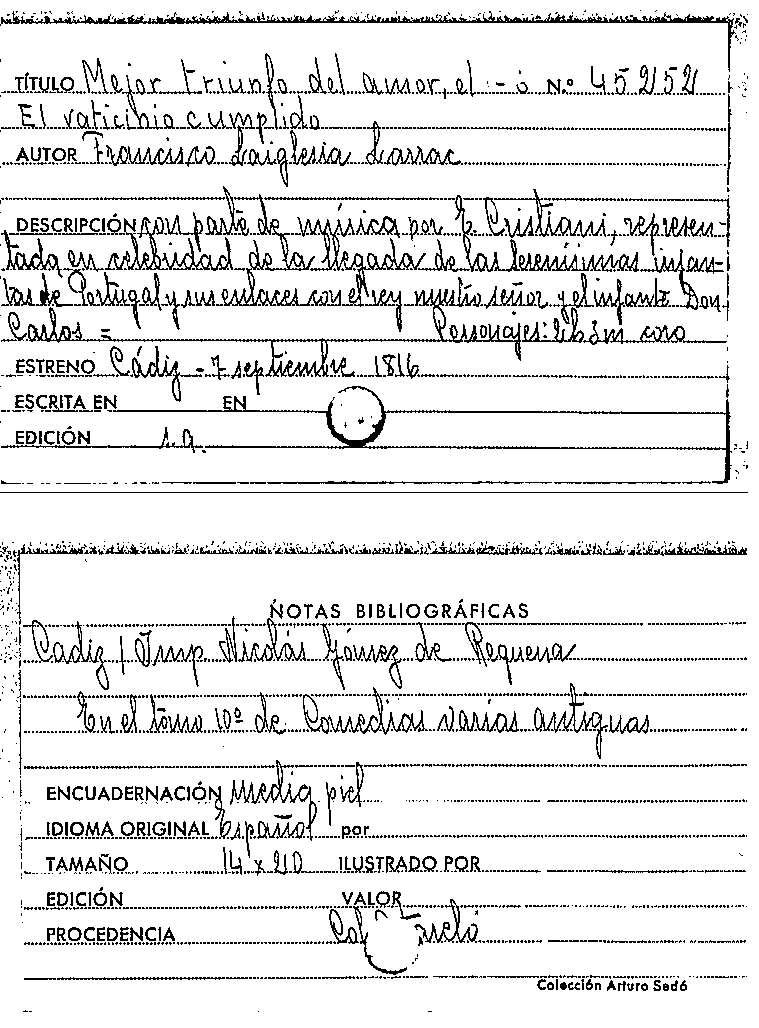 TÍTULO Mejor triunfo del amor, el - ó Nº 45252
El vaticinio cumplido
AUTOR Francisco Laiglesia Larrac
DESCRIPCIÓN con parte de música por E. Cristiani, represen-
tada en celebridad de la llegada de las serenísimas infan-
tas de Portugal y sus enlaces con el rey nuestro señor y el infante Don
Carlos = Personajes: 2h 3m coro
ESTRENO Cádiz - 7 septiembre 1816
ESCRITA EN EN
EDICIÓN s.a.
NOTAS BIBLIOGRÁFICAS
Cadiz / Imp Nicolás Gómez de Requena
En el tomo 10º de Comedias varias antiguas
ENCUADERNACIÓN Media piel
IDIOMA ORIGINAL Español por
TAMAÑO 14 x 20 ILUSTRADO POR
EDICIÓN VALOR
PROCEDENCIA
Colección Arturo Sedó